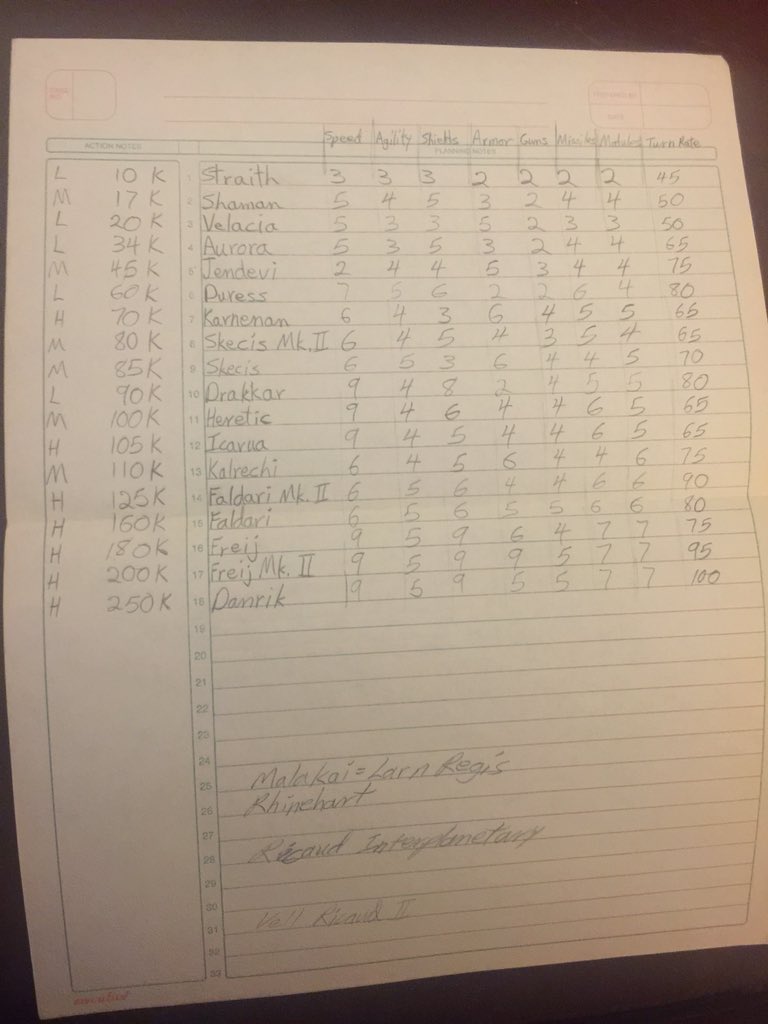 PREPARED BY
DATE
Speed Agility Shields Armor Guns Missiles Modules Turn Rate
ACTION NOTES PLANNING NOTES
L 10 K 1 Straith 3 3 3 2 2 2 2 45
M 17 K 2 Shaman 5 4 5 3 2 4 4 50
L 20 K 3 Velacia 5 3 3 5 2 3 3 50
L 34 K 4 Aurora 5 3 5 3 2 4 4 65
M 45 K 5 Jendevi 2 4 4 5 3 4 4 75
L 60 K 6 Duress 7 5 6 2 2 6 4 80
H 70 K 7 Karnenan 6 4 3 6 4 5 5 65
M 80 K 8 Skecis Mk.II 6 4 5 4 3 5 4 65
M 85 K 9 Skecis 6 5 3 6 4 4 5 70
L 90 K 10 Drakkar 9 4 8 2 4 5 5 80
M 100 K 11 Heretic 9 4 6 4 4 6 5 65
H 105 K 12 Icarua 9 4 5 4 4 6 5 65
M 110 K 13 Kalrechi 6 4 5 6 4 4 6 75
H 125 K 14 Faldari Mk.II 6 5 6 4 4 6 6 90
H 160 K 15 Faldari 6 5 6 5 5 6 6 80
H 180 K 16 Freij 9 5 9 6 4 7 7 75
H 200 K 17 Freij Mk. II 9 5 9 9 5 7 7 95
H 250 K 18 Danrik 9 5 9 5 5 7 7 100
19
20
21
22
23
24
25 Malakai = Larn Regis
26 Rhinehart
27
28 Ricaud Interplanetary
29
30
31 Vell Ricaud II
32
33